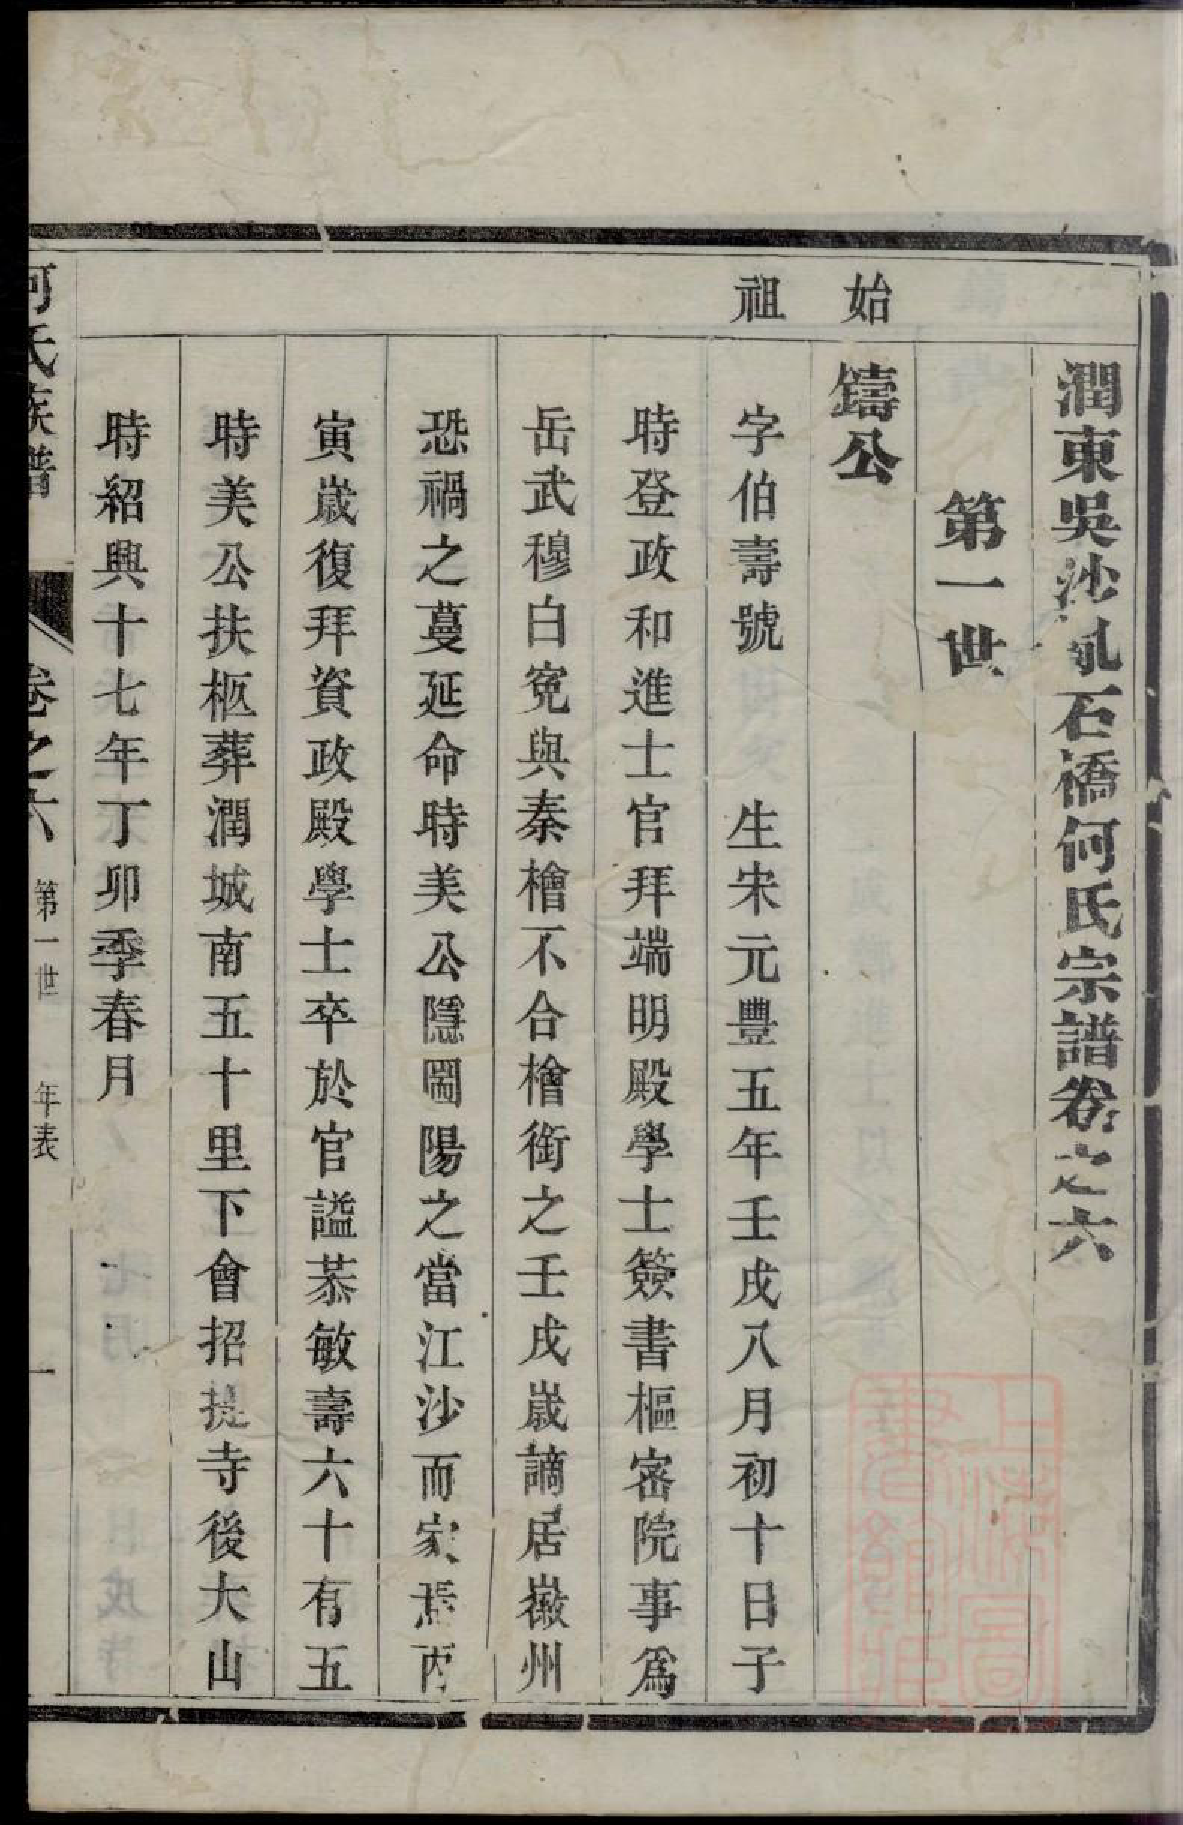 潤東吳沙亂石橋何氏宗譜卷之六
第一世
始祖
鑄公
字伯壽號　生宋元豐五年壬戌八月初十日子
時登政和進士官拜端明殿學士簽書樞密院事爲
岳武穆白寃與秦檜不合檜銜之壬戌歲謫居徽州
恐禍之蔓延命時美公隱圌陽之當江沙而家焉丙
寅歲復拜資政殿學士卒於官謚恭敏壽六十有五
時美公扶柩葬潤城南五十里下會招提寺後大山
時紹興十七年丁卯季春月
何氏族譜　卷之六　第一世　年表　一
上海圖書館藏